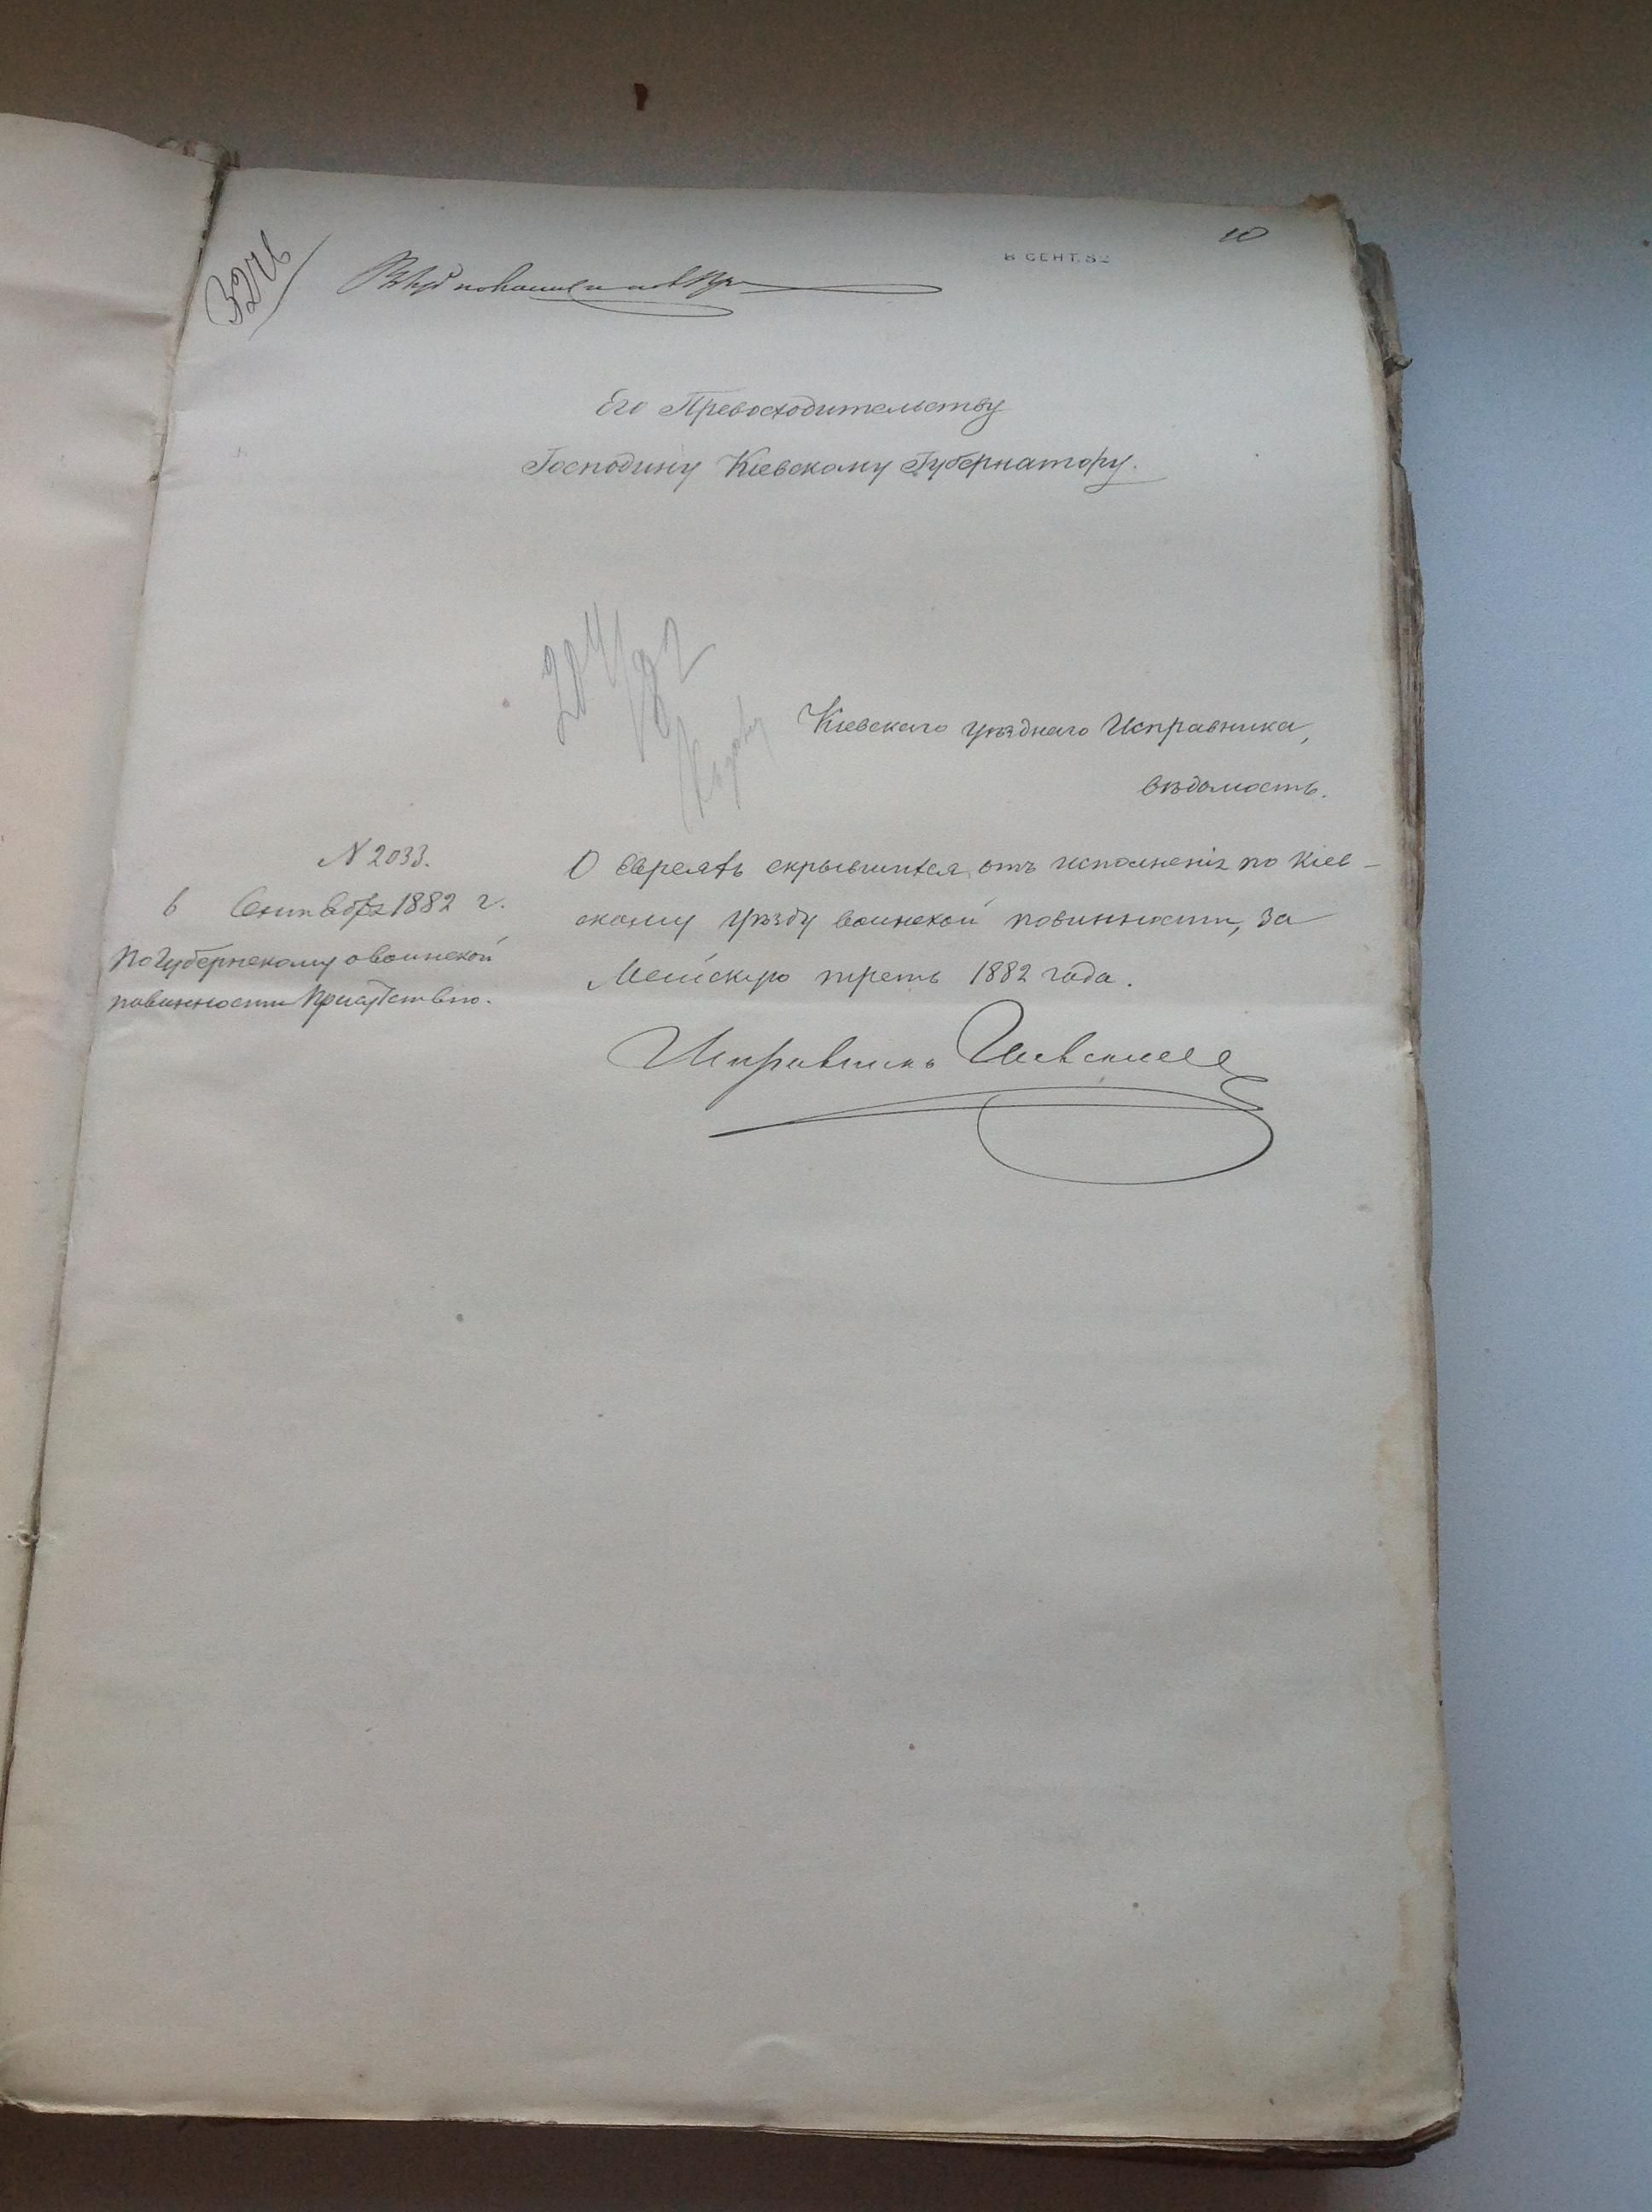 3276
10
8 СЕНТ. 82
Его Превосходительству
Господину Кіевскому Губернатору.
Кіевскаго уѣзднаго Исправника,
вѣдомость.
N 2033.
6 Сентября 1882 г.
По Губернскому о воинской
повинности Присутствію.
О евреяхъ скрывшихся отъ исполненія по Кіев-
скому уѣзду воинской повинности, за
Майскую треть 1882 года.
Исправникъ